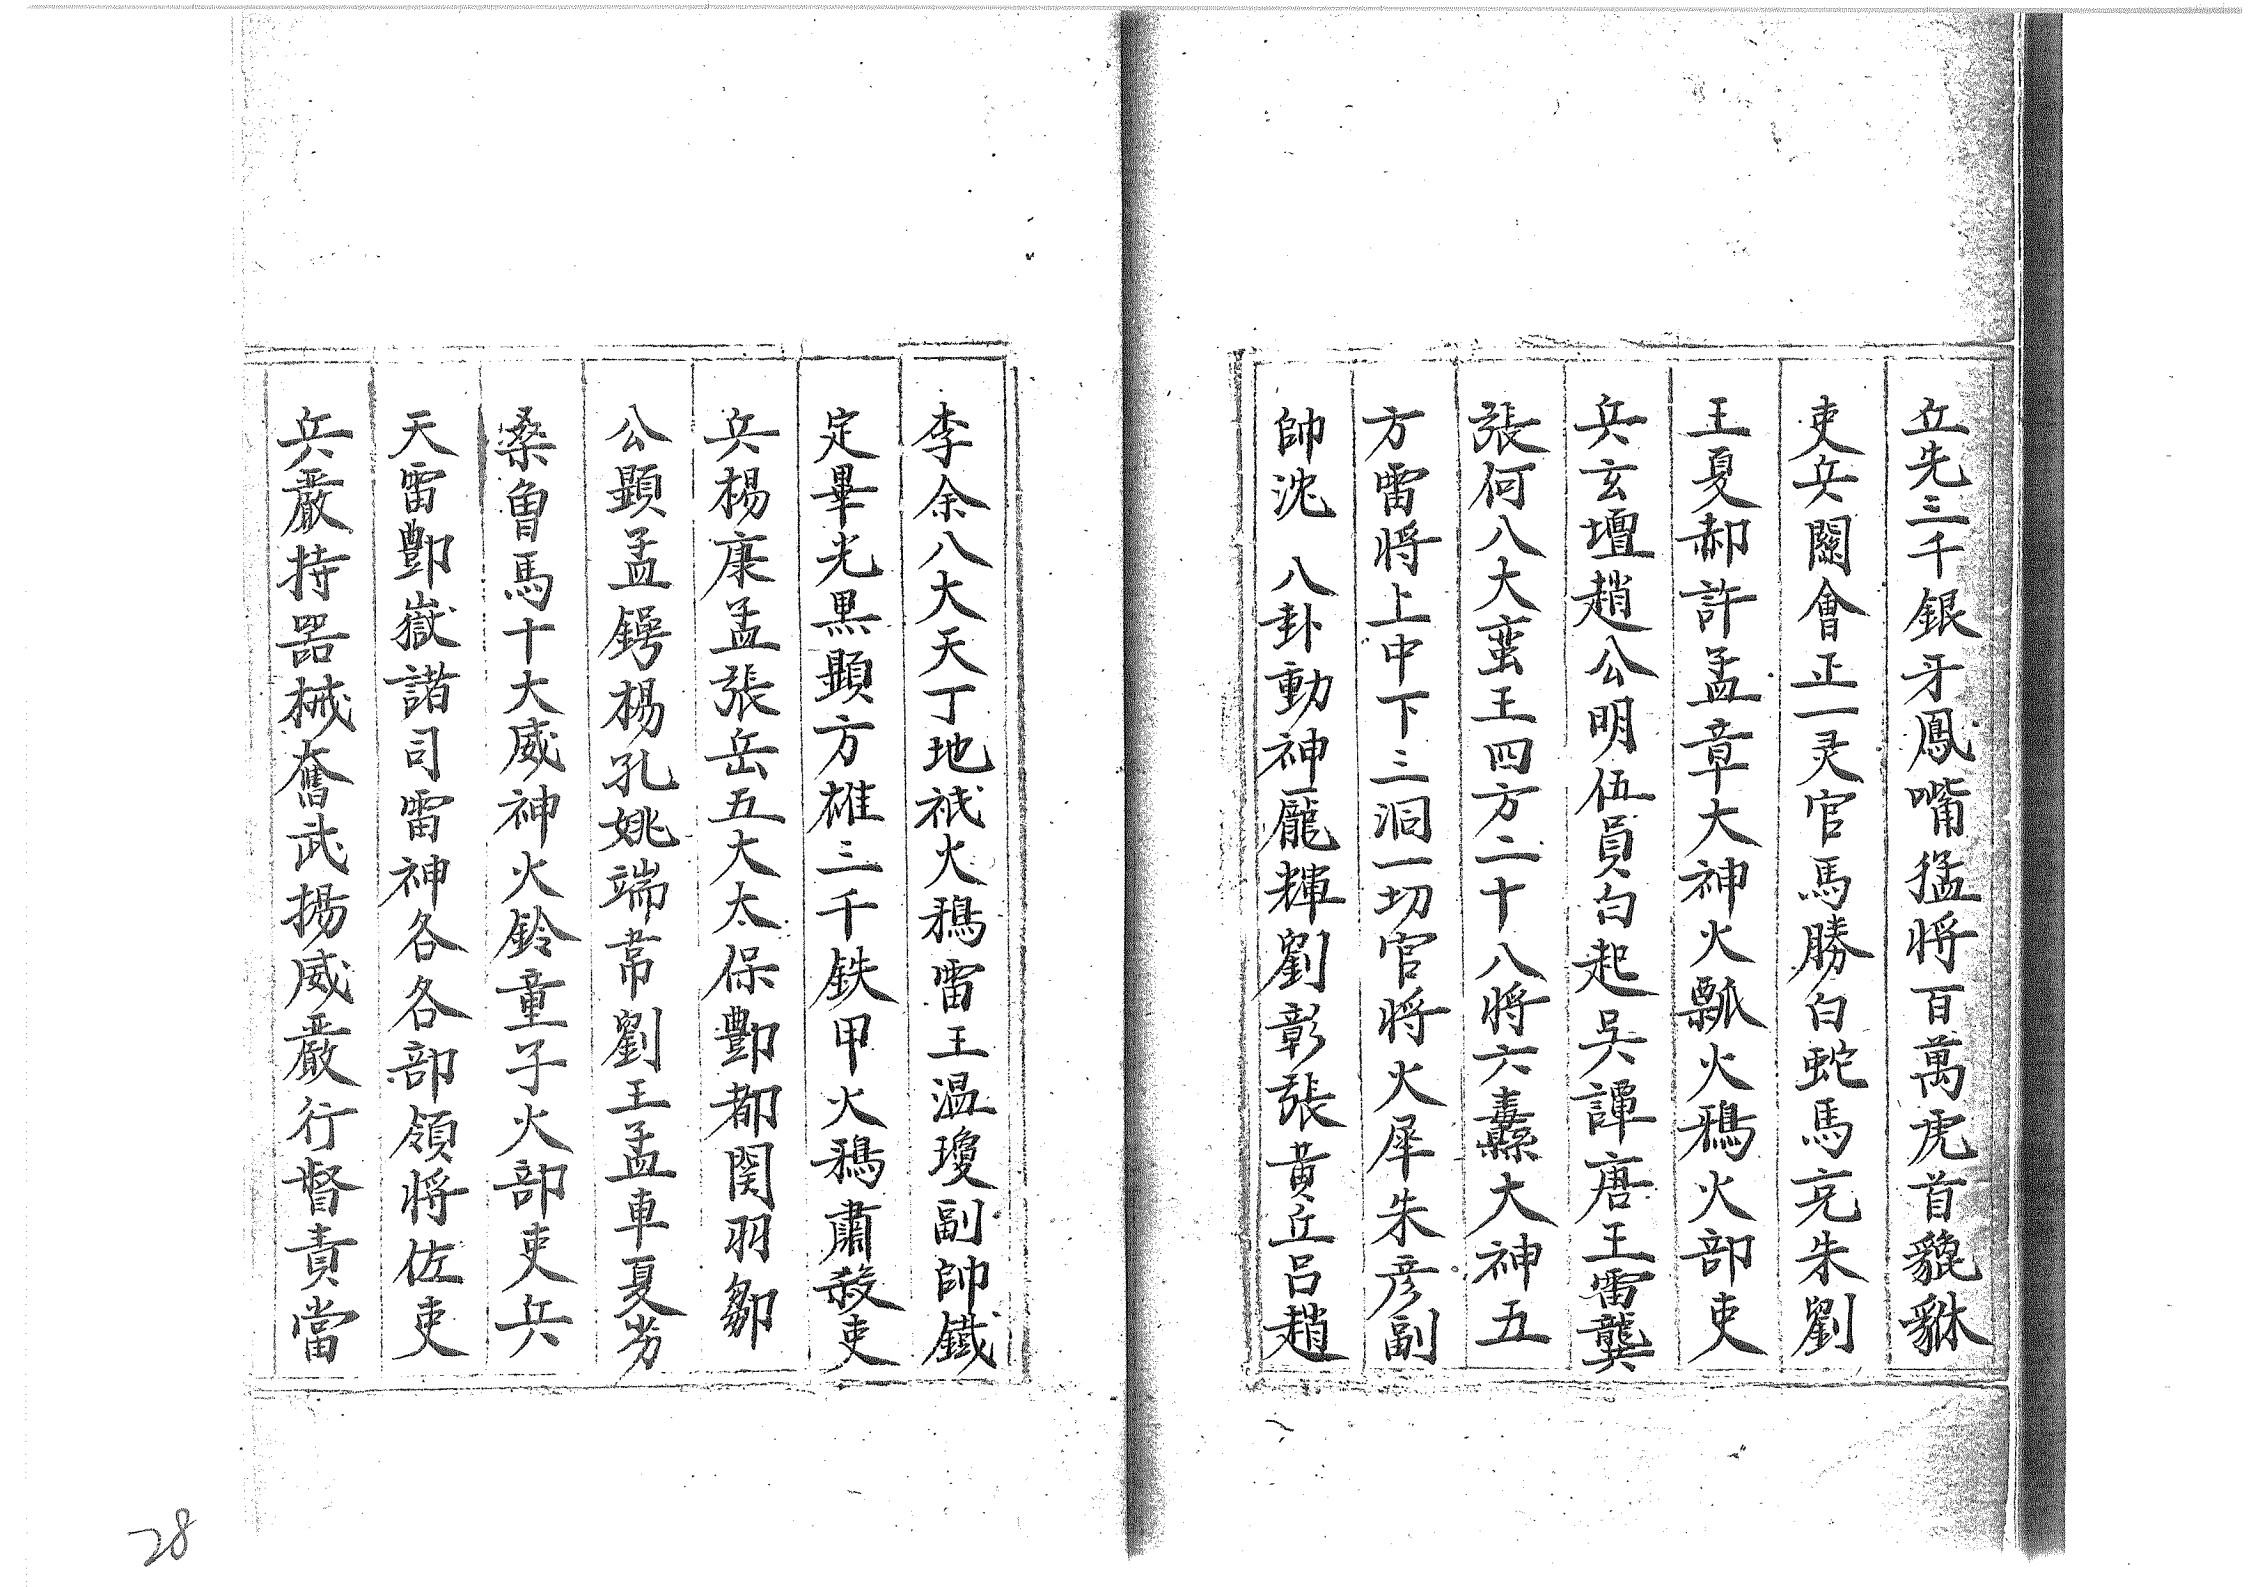 丘先三千銀牙鳳嘴猛将百萬虎首貔貅
吏兵関會正一灵官馬勝白蛇馬充朱劉
王夏郝許孟章大神火瓢火鴉火部吏
兵玄壇趙公明伍員白起吳譚唐王雷龔
張何八大蛮王四方二十八将六纛大神五
方雷将上中下三洞一切官将火犀朱彦副
帥沈 八卦動神龐輝劉彰張黃丘呂趙
李余八大天丁地祇火鴉雷王温瓊副帥鐵
定畢光黒顕方雄三千鉄甲火鴉肅殺吏
兵楊康孟張岳五大太保酆都関羽鄒
公顕孟鍔楊孔姚端常劉王孟車夏労
桑曾馬十大威神火鈴童子火部吏兵
天雷酆嶽諸司雷神各各部領将佐吏
兵嚴持器械奮武揚威嚴行督責當
28